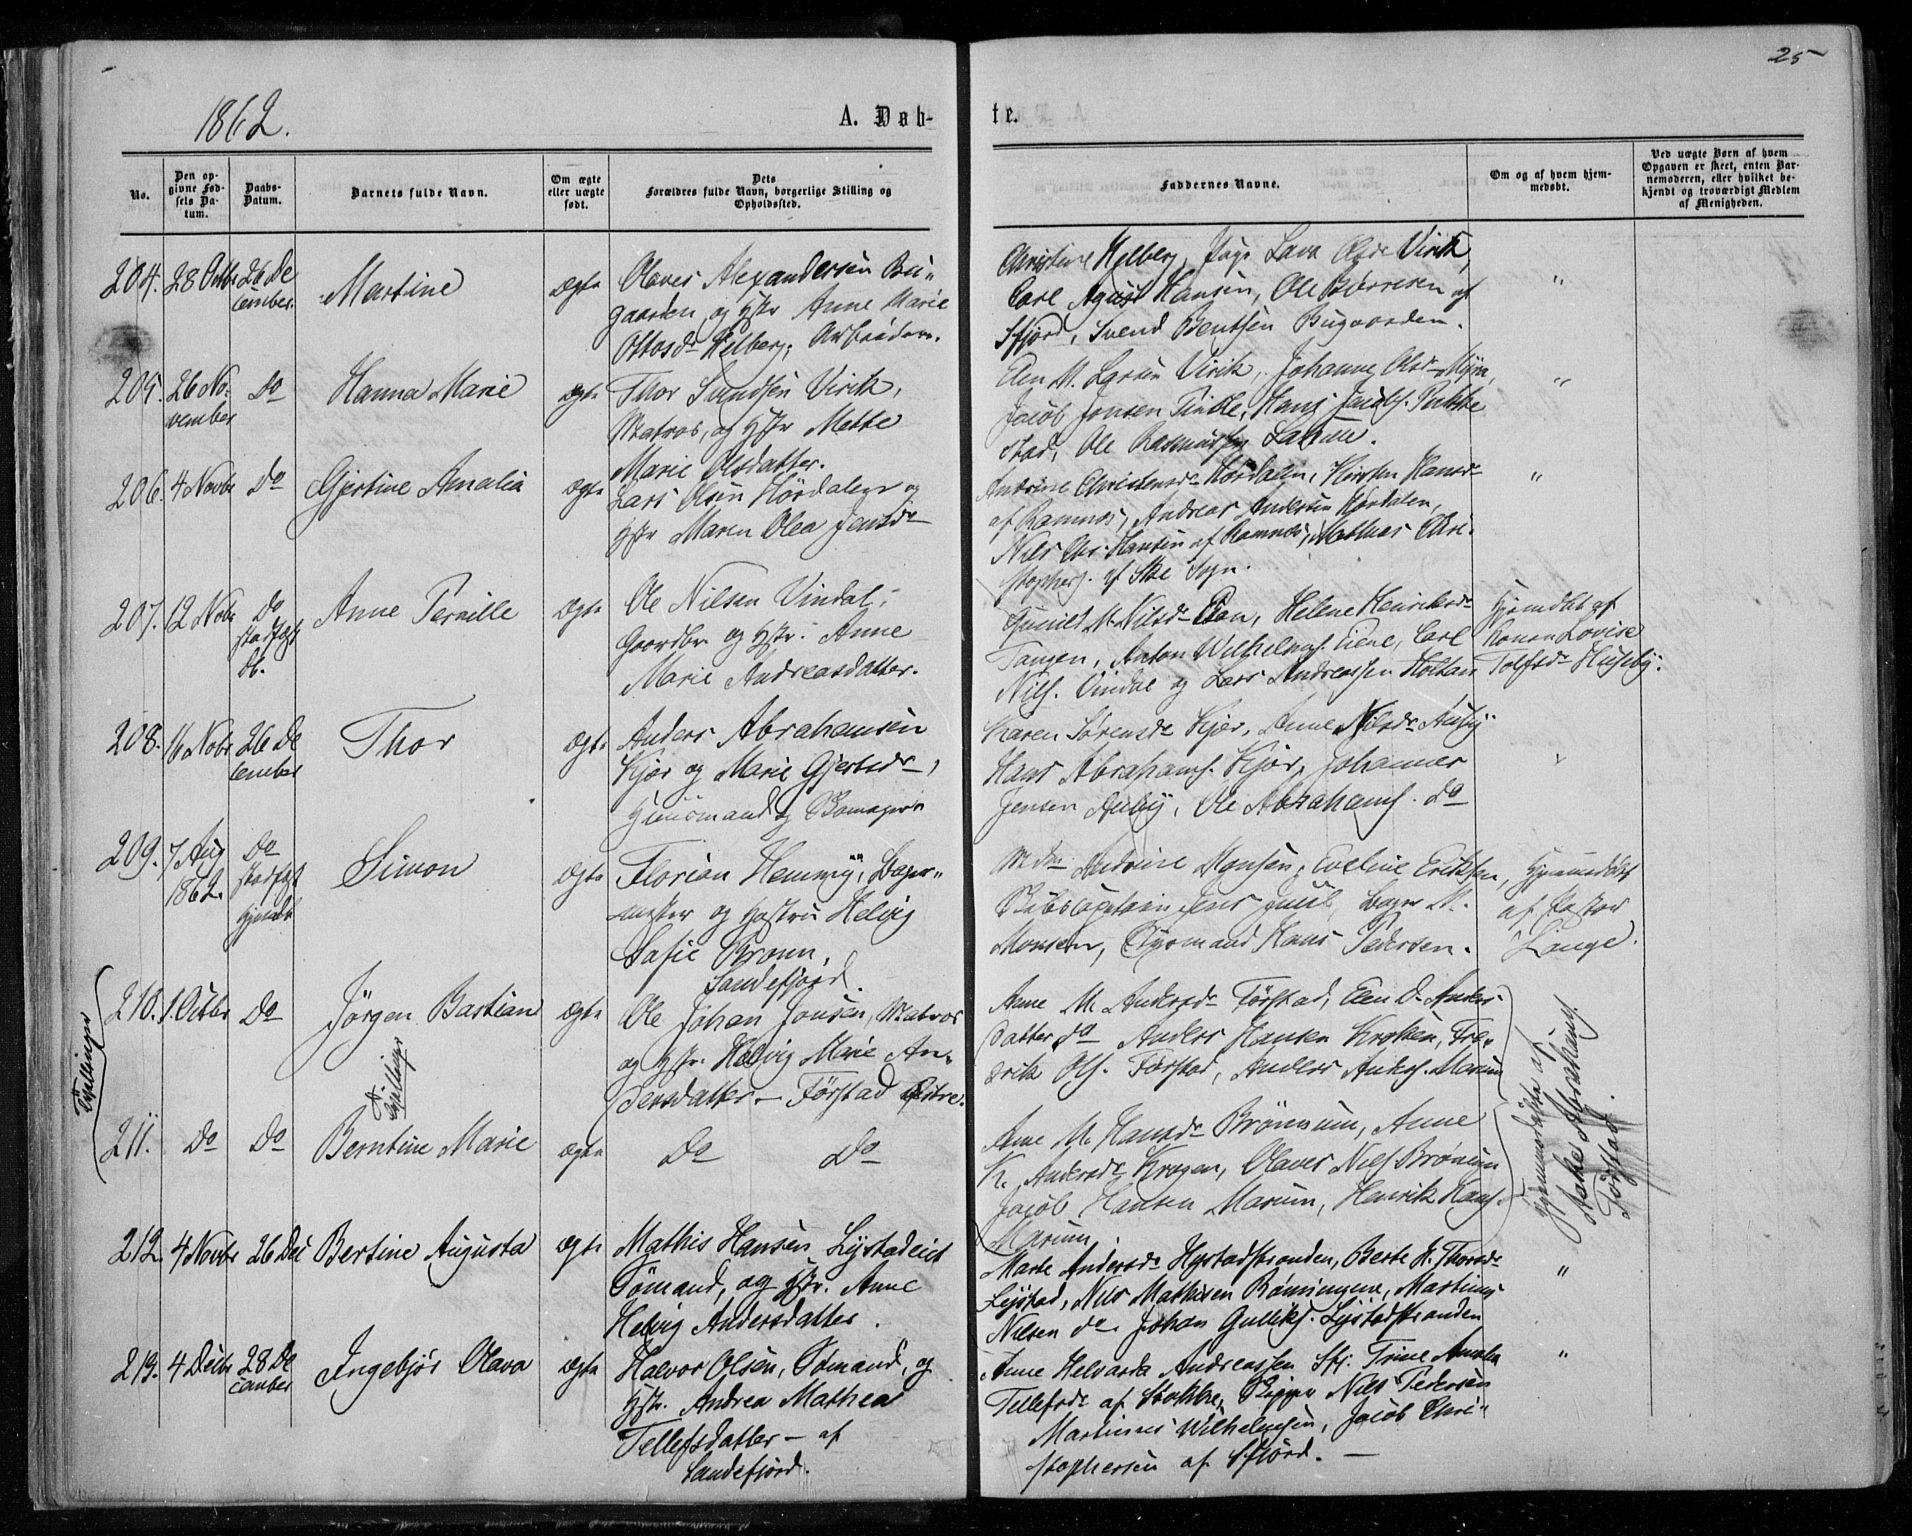 25
1862.
A. Døb-
te.
No.
Den op-
givne Fød-
sels Da-
tum.
Daabs-
Datum.
Barnets fulde Navn.
Om ægte
eller uægte
født.
Dets
Forældres fulde Navn, borgerlige Stilling og
Opholdssted.
Faddernes Navne.
Om og af hvem hjem-
medøbt.
Ved uægte Børn af hvem
Opgaven er skeet, enten Bar-
nemoderen, eller hvilket be-
kjendt og troværdigt Medlem
af Menigheden.
204. 28 Octbr 26 De
cember. Martine ægte
Olaves Alexandersen Bu-
gaarden og Hstr Anne Marie
Ottosdr Helberg,
Christine Helberg, Virik,
Carl Agust Hansen, Ole Børresen af
Sfjord, Svend Bentsen Bugaarden.
"
205. 26 No-
vember Do Hanna Marie ægte
Thor Svendsen Virik,
Matros, og Hstr Mette
Marie Olsdatter.
Elen M. Larsen Virik, Johanne Olsdr
Jacob Jonsen Hans Jacobs.
stad, Ole Rasmussen
"
206. 4 Novbr Do Gjertine Amalia ægte
Lars Olsen Hørdalen og
Hstr Maren Olea Jensdr
Andrine Christensdr Hørdalen, Kirsten Hansdr
af Ramnæs, Andreas Andersen Hørdalen,
Nils Chr. Hansen af Ramnæs, Mathias Chri-
stophers. af Skee Sogn.
"
207. 12 Nobr Do
stadfæst
Db. Anne Pernille ægte
Ole Nilsen Vindal,
Gaardbr og Hstr. Anne
Marie Andreasdatter.
M. Nilsdr Helene Henriksdr
Tangen, Anton Wilhelms. Carl
Nils. Vindal og Lars Andreassen Holtan
Hjemdbt af
Konen Lovise
Tolfsdr Huseby.
208. 16 Nobr 26 De
cember Thor ægte
Anders Abrahamsen
Kjær og Marie Gjertsdr,
Huusmand og Skomager
Karen Sørensdr Kjær, Anne Nilsdr Auby
Hans Abrahams. Kjær, Johannes
Jensen Auby, Ole Abrahams. do
209. 7 Aug
1862. Do
stadfæst
Hjemdb Simon ægte
Florian Hennig, Bager-
mester og Hustru Helvig
Sofie Bronn,
Sandefjord.
Mdm Andrine Monsen, Eveline Eriksen,
Skibscaptain Jens Juul, Bager M.
Monsen, Styrmand Hans Pedersen.
Hjemmedøbt
af Pastor
Lange.
Tvillinger
210. 1. Octbr Do Jørgen Bastian ægte
Ole Johan Jonsen, Matros
og Hstr. Helvig Marie An-
dersdatter - Førstad Østre.
Anne M. Andersdr Førstad, Elen D. Anders-
datter do Anders Hansen Kroken, Fre-
drik Ols. Førstad, Anders Anders. Marum
Tvillinger
211. Do Do Berntine Marie ægte
Do Do
Anne M. Hansdr Brønnum, Anne
K. Andersdr Krogen, Olaves Nils. Brønum
Jacob Hansen Marum, Henrik Hans.
Marum.
Hjemmedøbte af
Aake Abrahams.
Førstad.
212. 4 Novbr 26 Dec Bertine Augusta ægte
Mathis Hansen Lystadeiet
Sømand, og Hstr. Anne
Helvig Andersdatter.
Marte Andersdr Hystadstranden, Berte H. Thorsdr
Lystad, Nils Mathisen Rønningene, Martinus
Nilsen do. Johan Gulliks. Lystadstranden
"
213. 4 Decbr 28 De
cember Ingebjør Olava ægte
Halvor Olsen, Sømand, og
Hstr. Andrea Mathea
Tellefsdatter - af
Sandefjord.
Anne Helvarda Andreassen Sfj. Trine Amalia
Tellefsdr af Stokke, Skipper Nils Pedersen
Martinius Wilhelmsen, Jacob Chri-
stophersen af Sfjord. -
"